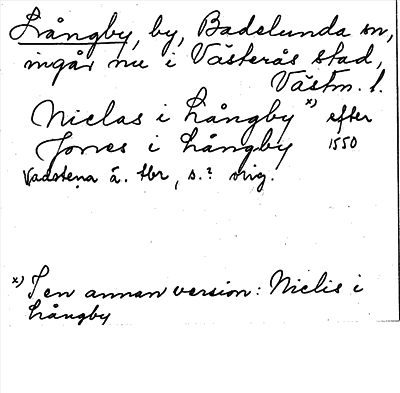 Långby, by, Badelunda sn,
ingår nu i Västerås stad,
Västm. l.
Niclas i Långby x) efter
Jorres i Långby 1550
Vadstena å. tbr, s.? orig.
x) I en annan version: Niclis i
Långby